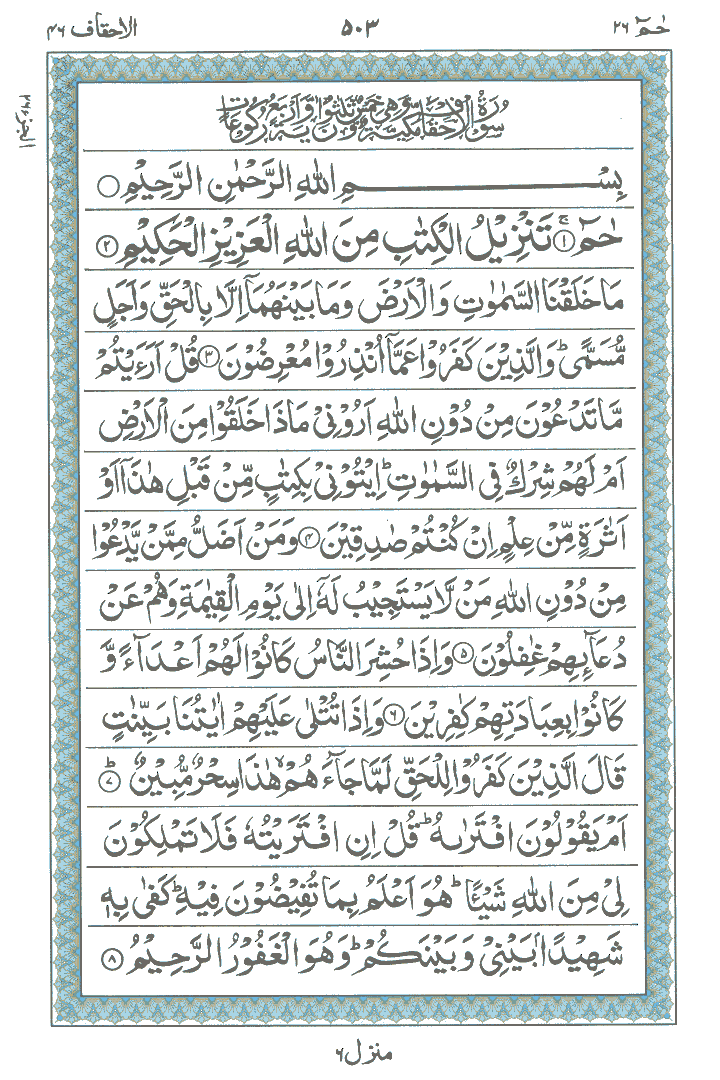 حٰمٓ ٢٦
٥٠٣
الاحقاف ٤٦
الجزء ٢٦
سُوْرَةُ الْاَحْقَافِ مَكِّيَّةٌ وَّهِيَ خَمْسٌ وَّثَلٰثُوْنَ اٰيَةً وَّاَرْبَعُ رُكُوْعَاتٍ
بِسْمِ اللّٰهِ الرَّحْمٰنِ الرَّحِيْمِ
حٰمٓ ۚ﴿١﴾ تَنْزِيْلُ الْكِتٰبِ مِنَ اللّٰهِ الْعَزِيْزِ الْحَكِيْمِ ﴿٢﴾
مَا خَلَقْنَا السَّمٰوٰتِ وَ الْاَرْضَ وَمَا بَيْنَهُمَاۤ اِلَّا بِالْحَقِّ وَ اَجَلٍ
مُّسَمًّى ؕ وَالَّذِيْنَ كَفَرُوْا عَمَّاۤ اُنْذِرُوْا مُعْرِضُوْنَ ﴿٣﴾ قُلْ اَرَءَيْتُمْ
مَّا تَدْعُوْنَ مِنْ دُوْنِ اللّٰهِ اَرُوْنِيْ مَاذَا خَلَقُوْا مِنَ الْاَرْضِ
اَمْ لَهُمْ شِرْكٌ فِي السَّمٰوٰتِ ؕ اِيْتُوْنِيْ بِكِتٰبٍ مِّنْ قَبْلِ هٰذَاۤ اَوْ
اَثٰرَةٍ مِّنْ عِلْمٍ اِنْ كُنْتُمْ صٰدِقِيْنَ ﴿٤﴾ وَ مَنْ اَضَلُّ مِمَّنْ يَّدْعُوْا
مِنْ دُوْنِ اللّٰهِ مَنْ لَّا يَسْتَجِيْبُ لَهٗۤ اِلٰى يَوْمِ الْقِيٰمَةِ وَهُمْ عَنْ
دُعَآىِٕهِمْ غٰفِلُوْنَ ﴿٥﴾ وَاِذَا حُشِرَ النَّاسُ كَانُوْا لَهُمْ اَعْدَآءً وَّ
كَانُوْا بِعِبَادَتِهِمْ كٰفِرِيْنَ ﴿٦﴾ وَاِذَا تُتْلٰى عَلَيْهِمْ اٰيٰتُنَا بَيِّنٰتٍ
قَالَ الَّذِيْنَ كَفَرُوْا لِلْحَقِّ لَمَّا جَآءَهُمْ ۙ هٰذَا سِحْرٌ مُّبِيْنٌ ؕ﴿٧﴾
اَمْ يَقُوْلُوْنَ افْتَرٰىهُ ؕ قُلْ اِنِ افْتَرَيْتُهٗ فَلَا تَمْلِكُوْنَ
لِيْ مِنَ اللّٰهِ شَيْـًٔا ؕ هُوَ اَعْلَمُ بِمَا تُفِيْضُوْنَ فِيْهِ ؕ كَفٰى بِهٖ
شَهِيْدًۢا بَيْنِيْ وَ بَيْنَكُمْ ؕ وَهُوَ الْغَفُوْرُ الرَّحِيْمُ ﴿٨﴾
منزل ٦